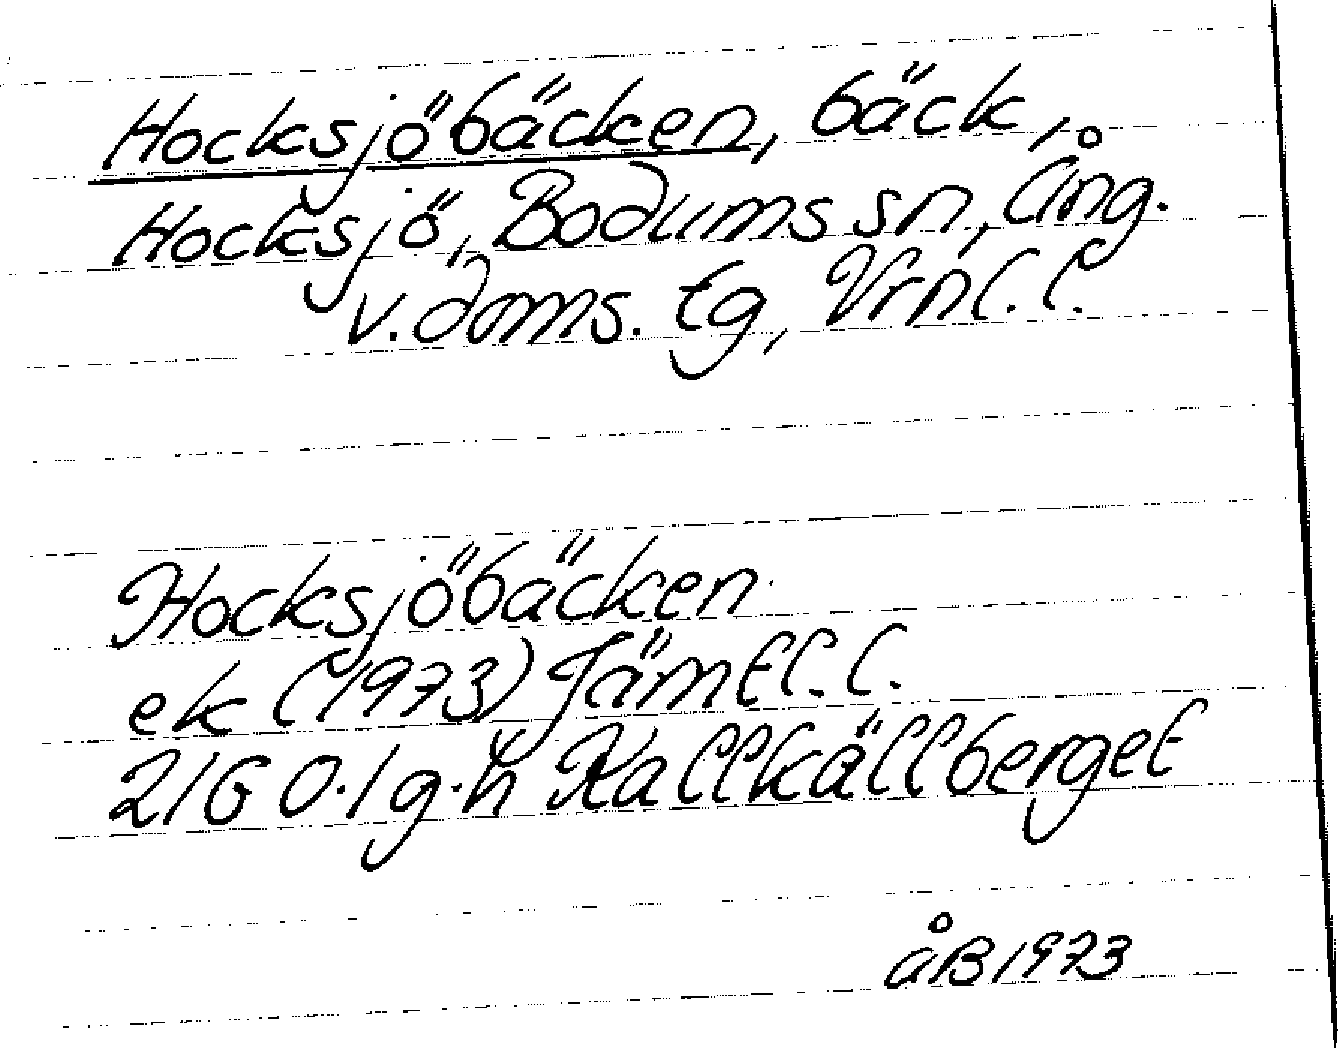 Hocksjöbäcken, bäck,
Hocksjö, Bodums sn, Ång.
v. doms. tg, Vrnl. l.
Hocksjöbäcken
ek (1973) Jämtl. l.
21G 0-1 g-h Kallkällberget
åB 1973